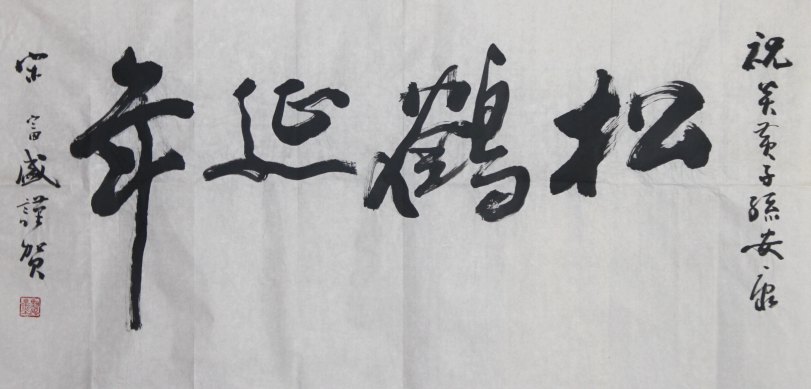 祝炎黄子孫安康
松鶴延年
宋富盛謹贺